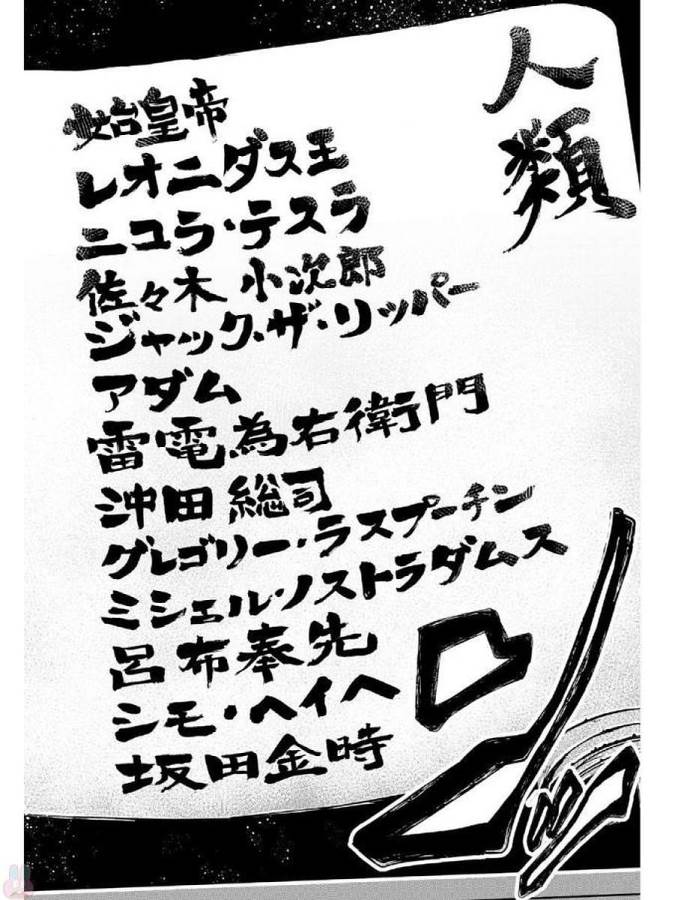 人類
始皇帝
レオニダス王
ニコラ・テスラ
佐々木 小次郎
ジャック・ザ・リッパー
アダム
雷電為右衛門
沖田総司
グレゴリー・ラスプーチン
ミシェル・ノストラダムス
呂布奉先
シモ・ヘイヘ
坂田金時